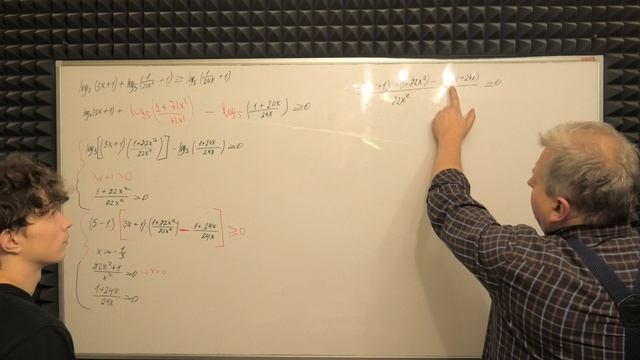 log₅(3x+1) + log₅(1/22x² + 1) ≥ log₅(1/24x + 1)
log₅(3x+1) + log₅((1+22x²)/22x²) − log₅((1+24x)/24x) ≥ 0
log₅[(3x+1)((1+22x²)/22x²)] − log₅((1+24x)/24x) ≥ 0
3x+1 > 0
(1+22x²)/22x² > 0
(5−1)[(3x+1)((1+22x²)/22x²) − (1+24x)/24x] ≥ 0
x > −1/3
(22x²+1)/x² > 0
(1+24x)/24x > 0
+1) (1+22x²) − +24x) ≥ 0
22x²